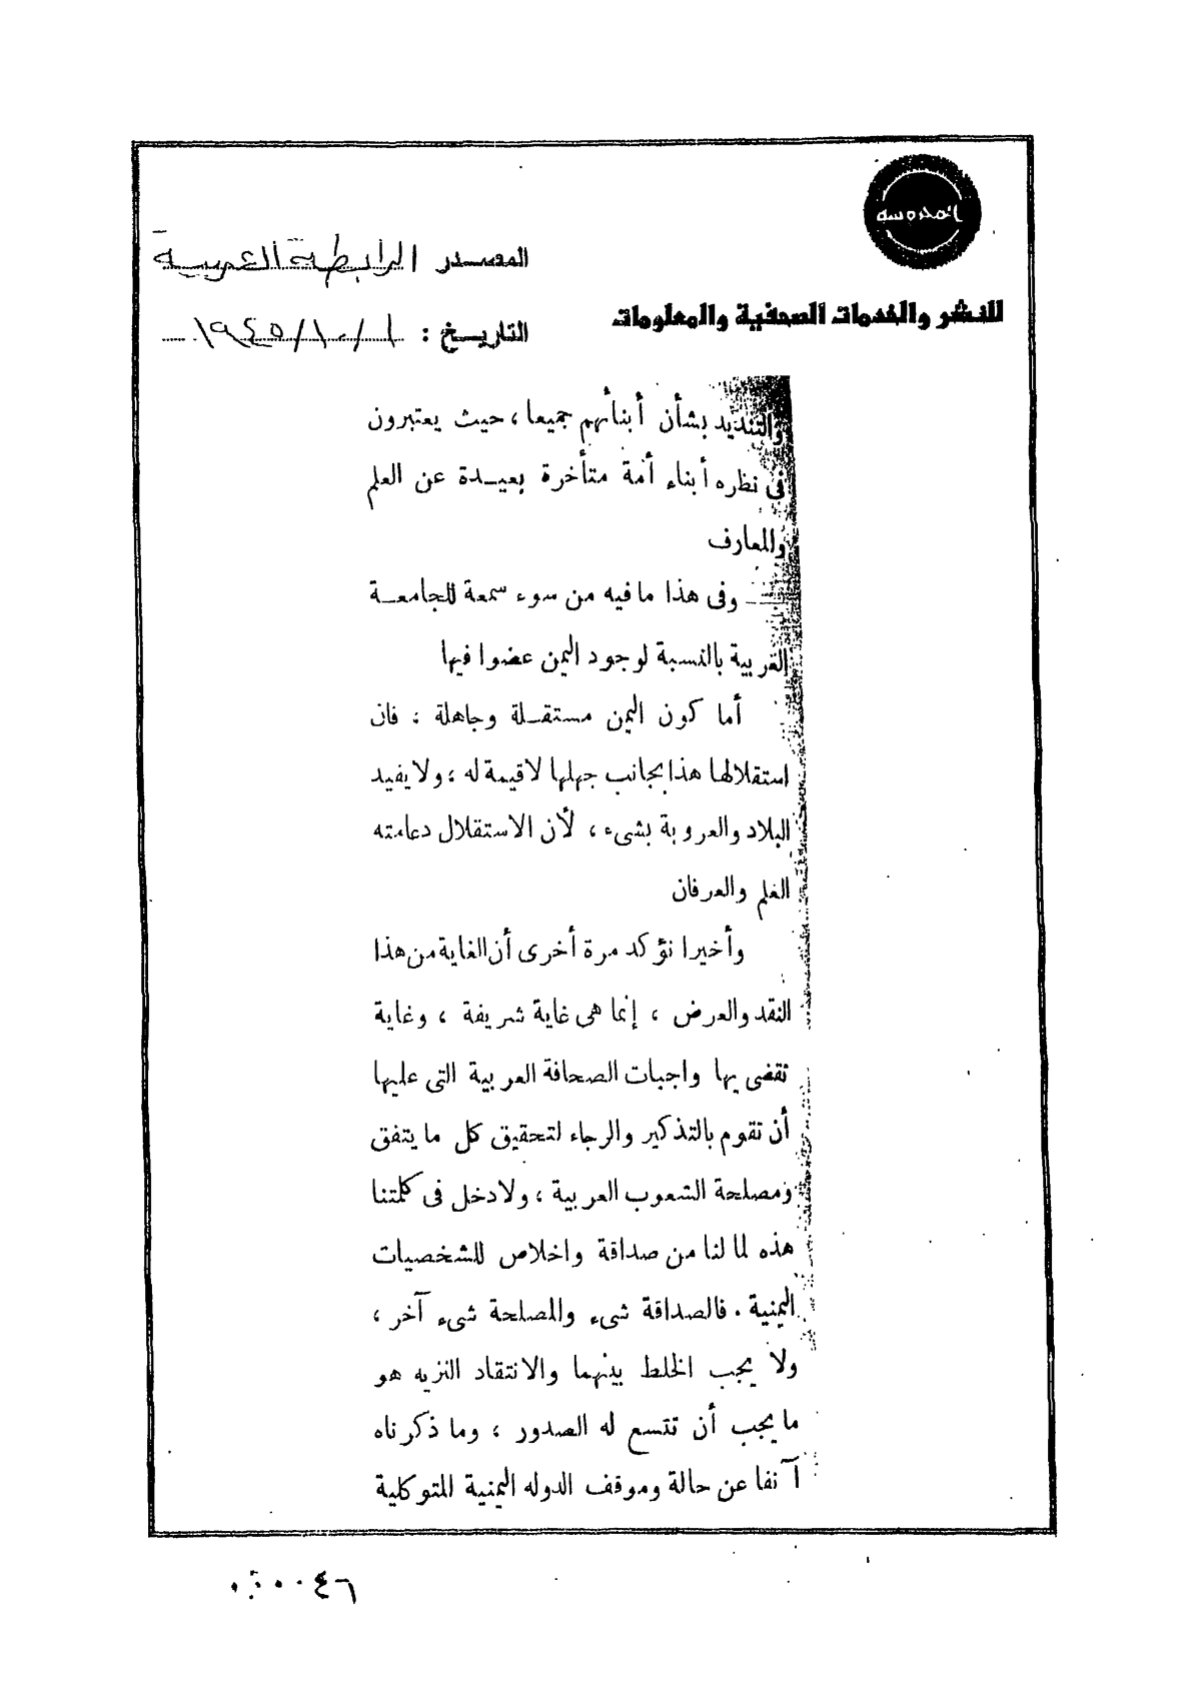 المحروسة
المصدر الرابطة العربية
للنشر والخدمات الصحفية والمعلومات
التاريخ : ١٩٤٥/١٠/١
والتنديد بشأن أبنائهم جميعا ، حيث يعتبرون
فى نظره أبناء أمة متأخرة بعيـدة عن العلم
والمعارف
وفى هذا مافيه من سوء سمعة للجامعـة
العربية بالنسبة لوجود اليمن عضوا فيها
أما كون اليمن مستقـلة وجاهلة ، فان
استقلالها هذا بجانب جهلها لاقيمة له ، ولا يفيد
البلاد والعروبة بشىء ، لأن الاستقلال دعامته
العلم والعرفان
وأخيرا نؤكد مرة أخرى أن الغاية من هذا
النقد والعرض ، إنما هى غاية شريفة ، وغاية
تقضى بها واجبات الصحافة العربية التى عليها
أن تقوم بالتذكير والرجاء لتحقيق كل ما يتفق
ومصلحة الشعوب العربية ، ولادخل فى كلمتنا
هذه لما لنا من صداقة واخلاص للشخصيات
اليمنية . فالصداقة شىء والمصلحة شىء آخر ،
ولا يجب الخلط بينهما والانتقاد النزيه هو
ما يجب أن تتسع له الصدور ، وما ذكرناه
آنفا عن حالة وموقف الدوله اليمنية المتوكلية